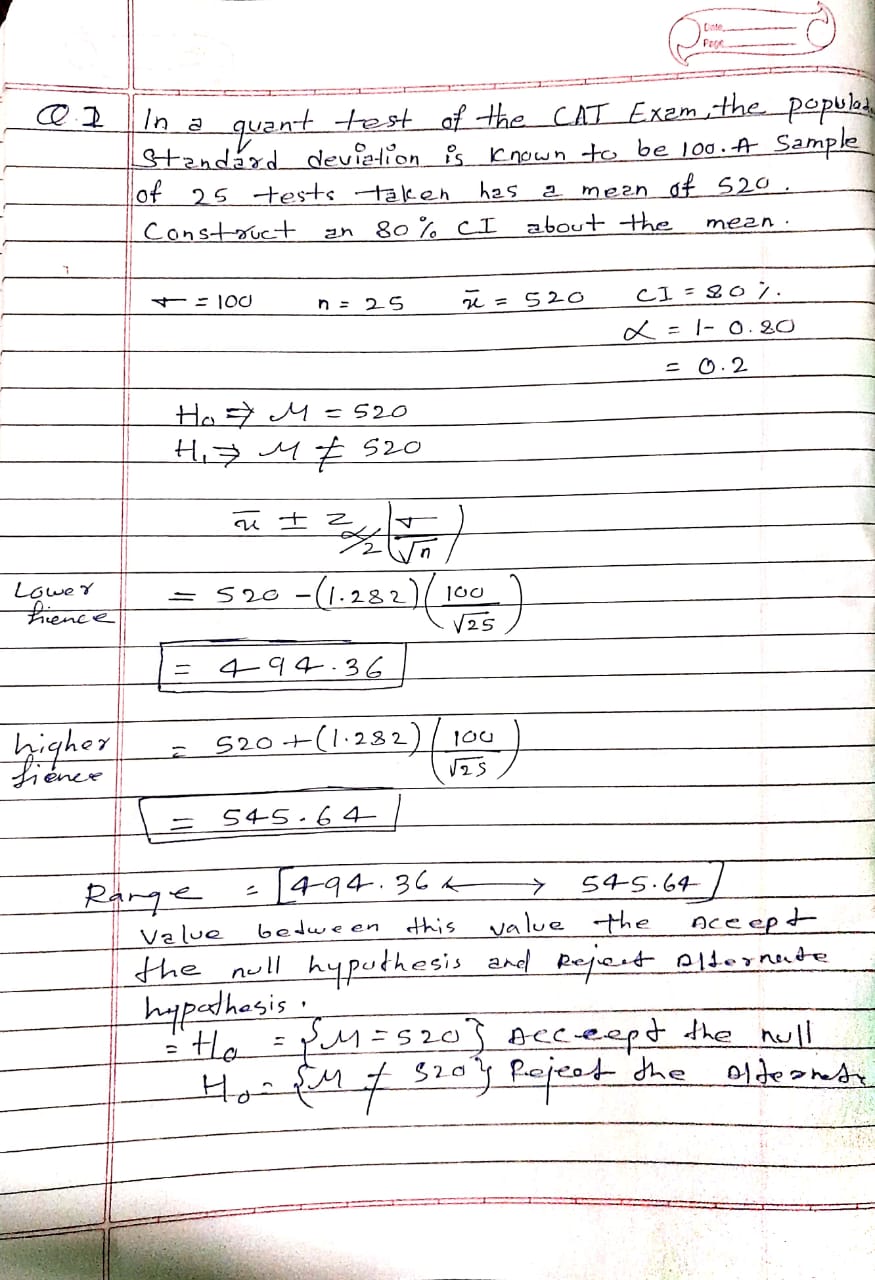 Date
Page
Q.1 In a quant test of the CAT Exam, the populat
Standard deviation is known to be 100. A Sample
of 25 tests taken has a mean of 520.
Construct an 80% CI about the mean.
σ = 100 n = 25 x̄ = 520 CI = 80%
α = 1 - 0.80
= 0.2
H₀ ⇒ μ = 520
H₁ ⇒ μ ≠ 520
x̄ ± z α/2 (σ/√n)
Lower fience = 520 - (1.282) (100/√25)
= 494.36
higher fience = 520 + (1.282) (100/√25)
= 545.64
Range = [494.36 ← → 545.64]
Value between this value the Accept
the null hyputhesis and Reject Alternate
hypothesis.
= H₀ = {μ = 520} Acceept the null
H₀ = {μ ≠ 520} Reject the Alternate